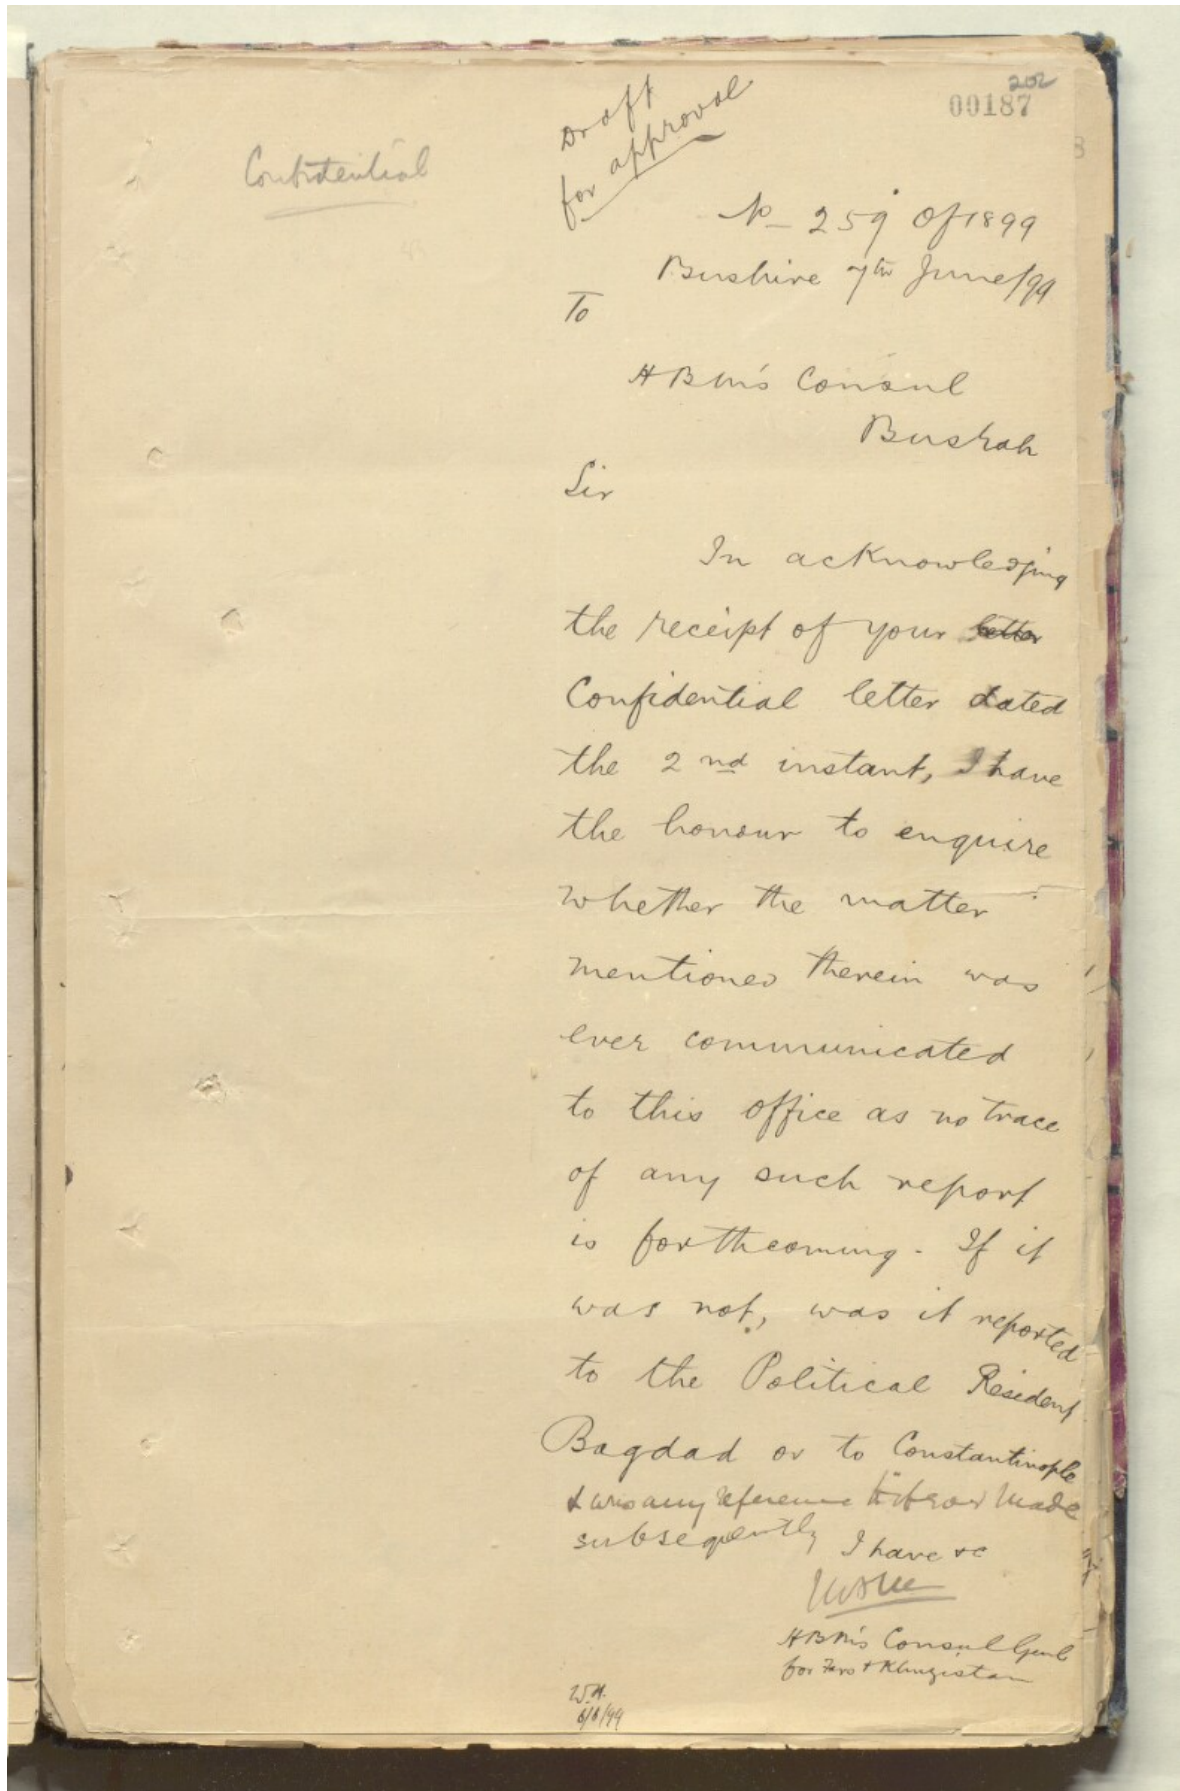 202
00187
Draft
for approval
Confidential
No 259 Of 1899
Bushire 7th June/99
To
HBM's Consul
Busrah
Sir
In acknowledging
the receipt of your letter
Confidential letter dated
the 2nd instant, I have
the honour to enquire
whether the matter
mentioned therein was
ever communicated
to this office as no trace
of any such report
is forthcoming. If it
was not, was it reported
to the Political Resident
Bagdad or to Constantinople
& was any reference made
subsequently
I have &c
HBM's Consul Genl
for Fars & Khuzistan
W.H.
6/6/99